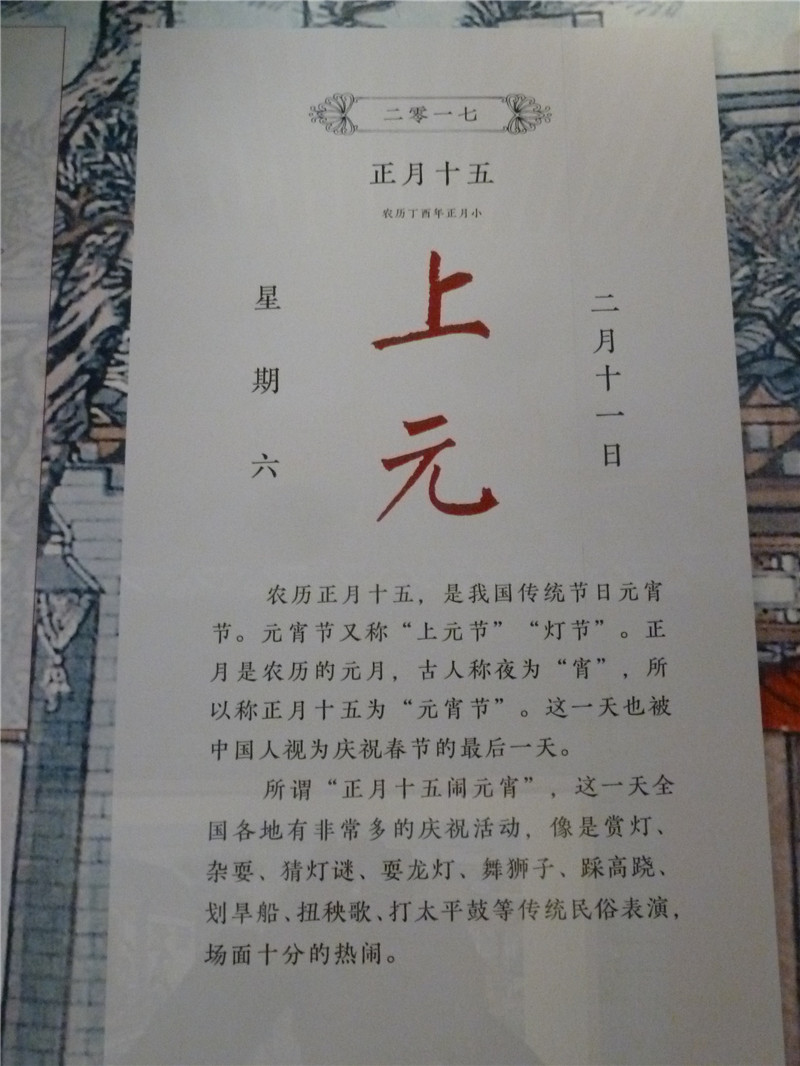 二零一七
正月十五
农历丁酉年正月小
上元
星期六
二月十一日
农历正月十五，是我国传统节日元宵
节。元宵节又称“上元节”“灯节”。正
月是农历的元月，古人称夜为“宵”，所
以称正月十五为“元宵节”。这一天也被
中国人视为庆祝春节的最后一天。
所谓“正月十五闹元宵”，这一天全
国各地有非常多的庆祝活动，像是赏灯、
杂耍、猜灯谜、耍龙灯、舞狮子、踩高跷、
划旱船、扭秧歌、打太平鼓等传统民俗表演，
场面十分的热闹。